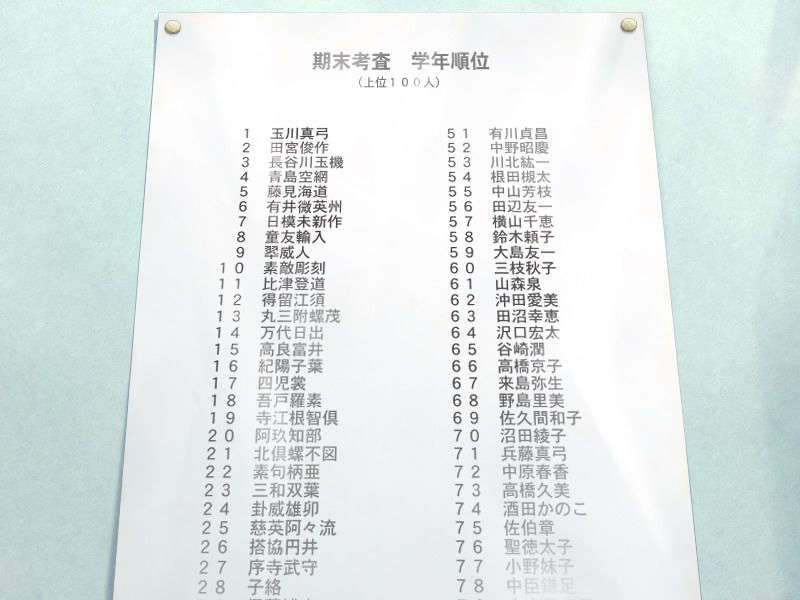 期末考査　学年順位
（上位１００人）
1 玉川真弓
2 田宮俊作
3 長谷川玉機
4 青島空網
5 藤見海道
6 有井微英州
7 日模未新作
8 童友輸入
9 翆威人
10 素敵彫刻
11 比津登道
12 得留江須
13 丸三附螺茂
14 万代日出
15 高良富井
16 紀陽子葉
17 四児裳
18 吾戸羅素
19 寺江根智倶
20 阿玖知部
21 北倶螺不図
22 素句柄亜
23 三和双葉
24 卦威雄卯
25 慈英阿々流
26 搭協円井
27 序寺武守
28 子絡
51 有川貞昌
52 中野昭慶
53 川北紘一
54 根田槻太
55 中山芳枝
56 田辺友一
57 横山千恵
58 鈴木頼子
59 大島友一
60 三枝秋子
61 山森泉
62 沖田愛美
63 田沼幸恵
64 沢口宏太
65 谷崎潤
66 高橋京子
67 来島弥生
68 野島里美
69 佐久間和子
70 沼田綾子
71 兵藤真弓
72 中原春香
73 高橋久美
74 酒田かのこ
75 佐伯章
76 聖徳太子
77 小野妹子
78 中臣鎌足